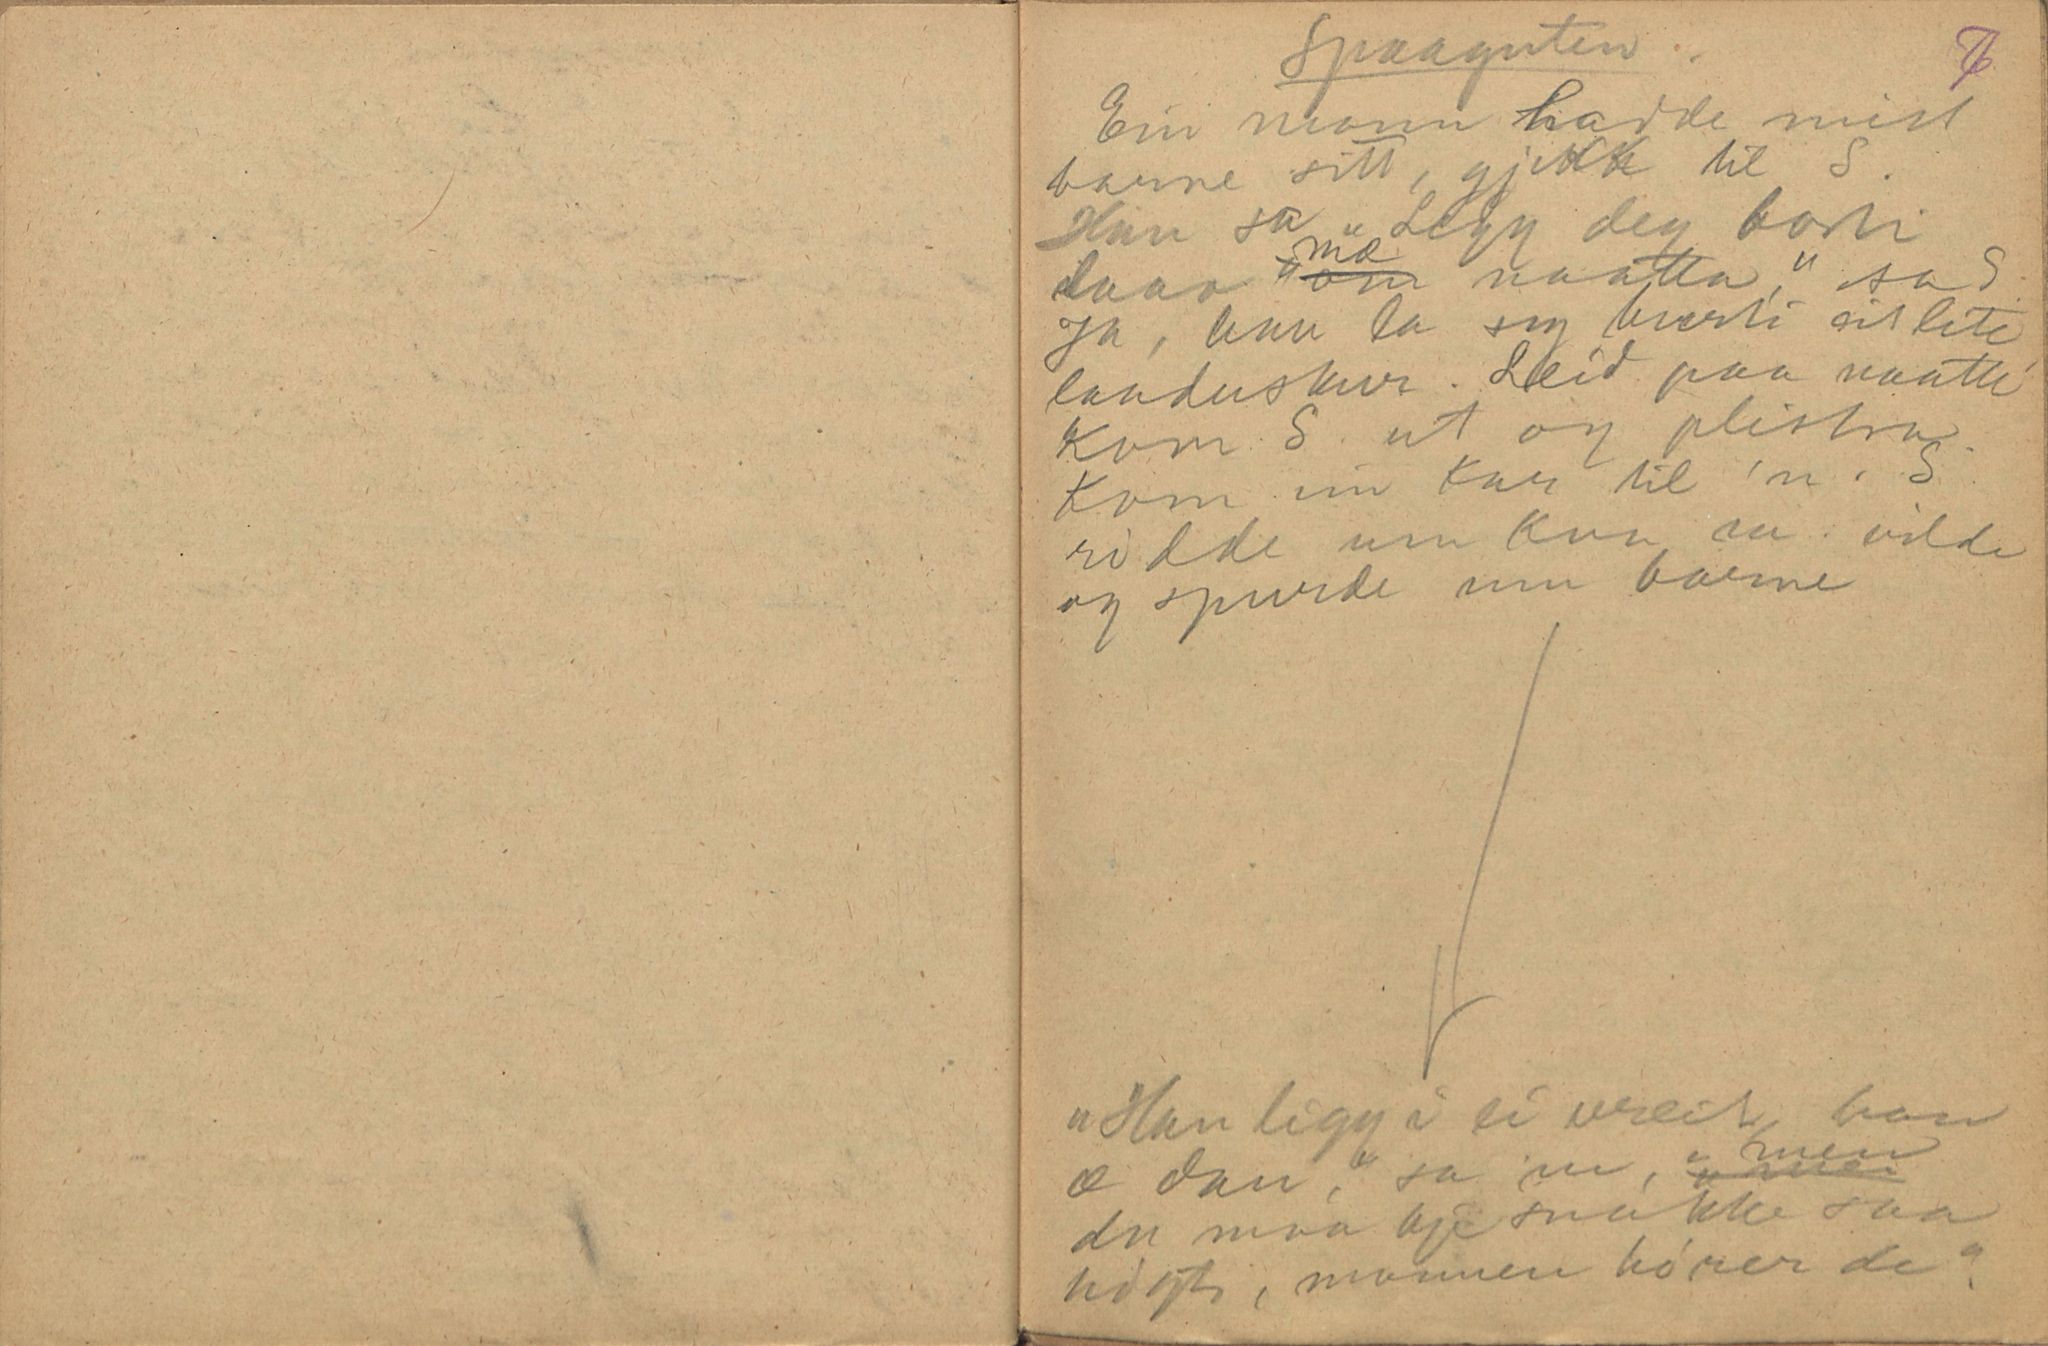 Spaaguten.
Ein mann hadde mist
barne sitt, gjekk til S.
Han sa „Legg deg borti
laao "om mæ naatta," sa S.
Ja, han la seg burti eit lite
landuskur. Leid paa naatti
kom S. ut og plistra.
Kom ein kar til 'n. S.
um kua
og spurde um barne
„Han ligg i ei vreit, han
æ dau," sa 'n, „men
du maa kje snakke saa
høgt, mannen hører de".